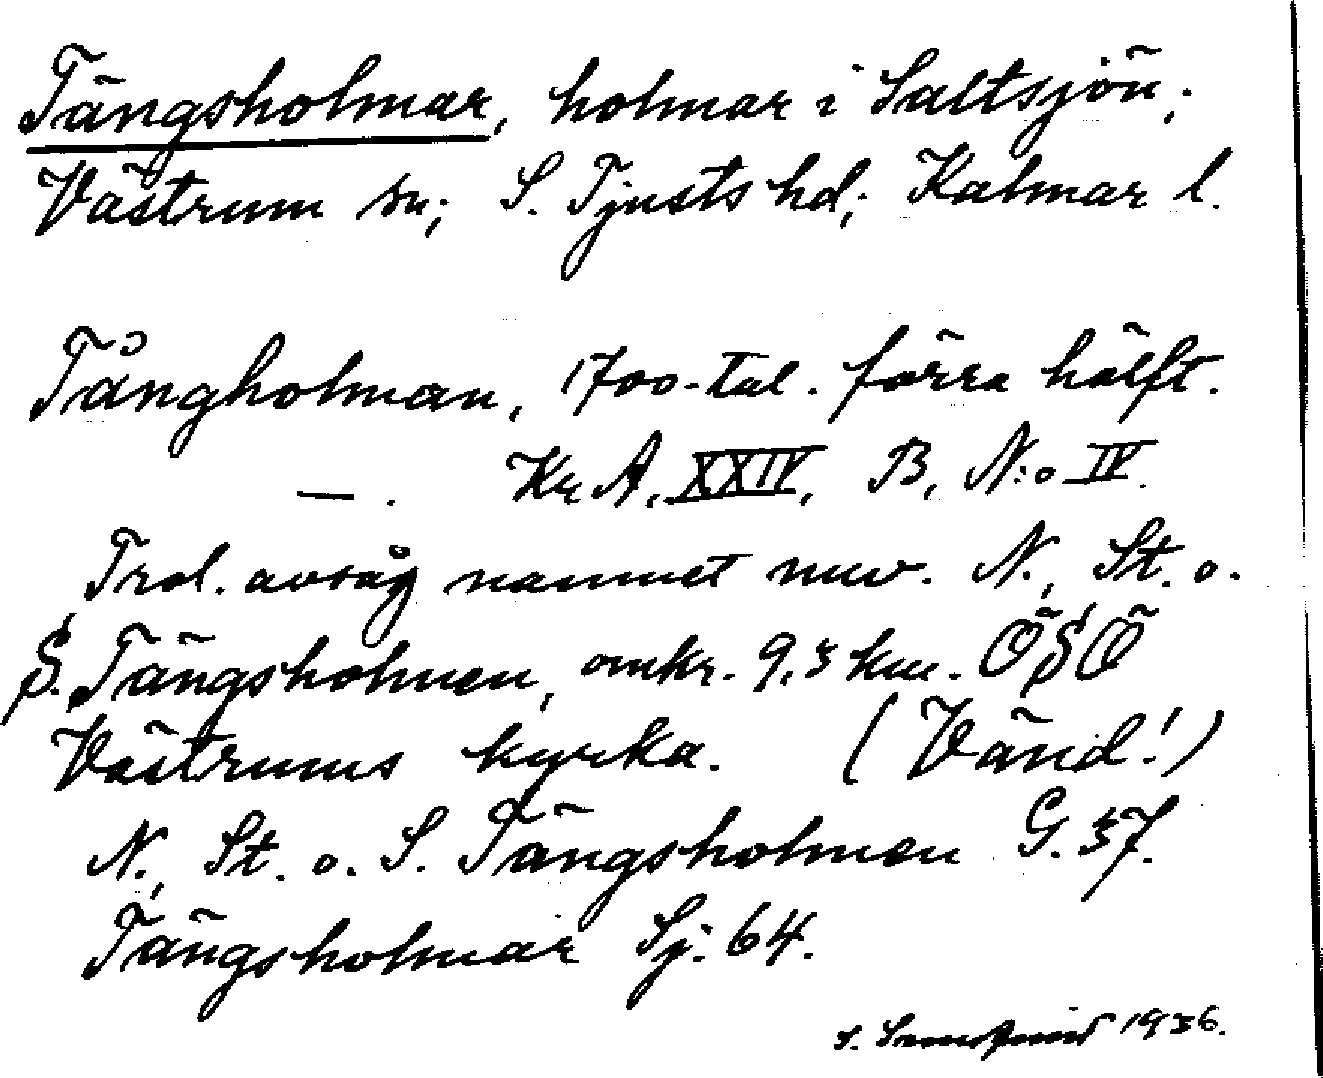 Tängsholmar, holmar i Saltsjön;
Västrum sn; S. Tjusts hd; Kalmar l.
Tångholman, 1700-tal. förra hälft.
— . Kr A, XXIV, B, N:o IV.
Trol. avsåg namnet nuv. N., St. o.
S. Tängsholmen, omkr. 9,5 km. ÖSÖ
Västrums kyrka. (Vänd!)
N., St. o. S. Tängsholmen G. 37.
Tängsholmar Sj. 64.
1936.